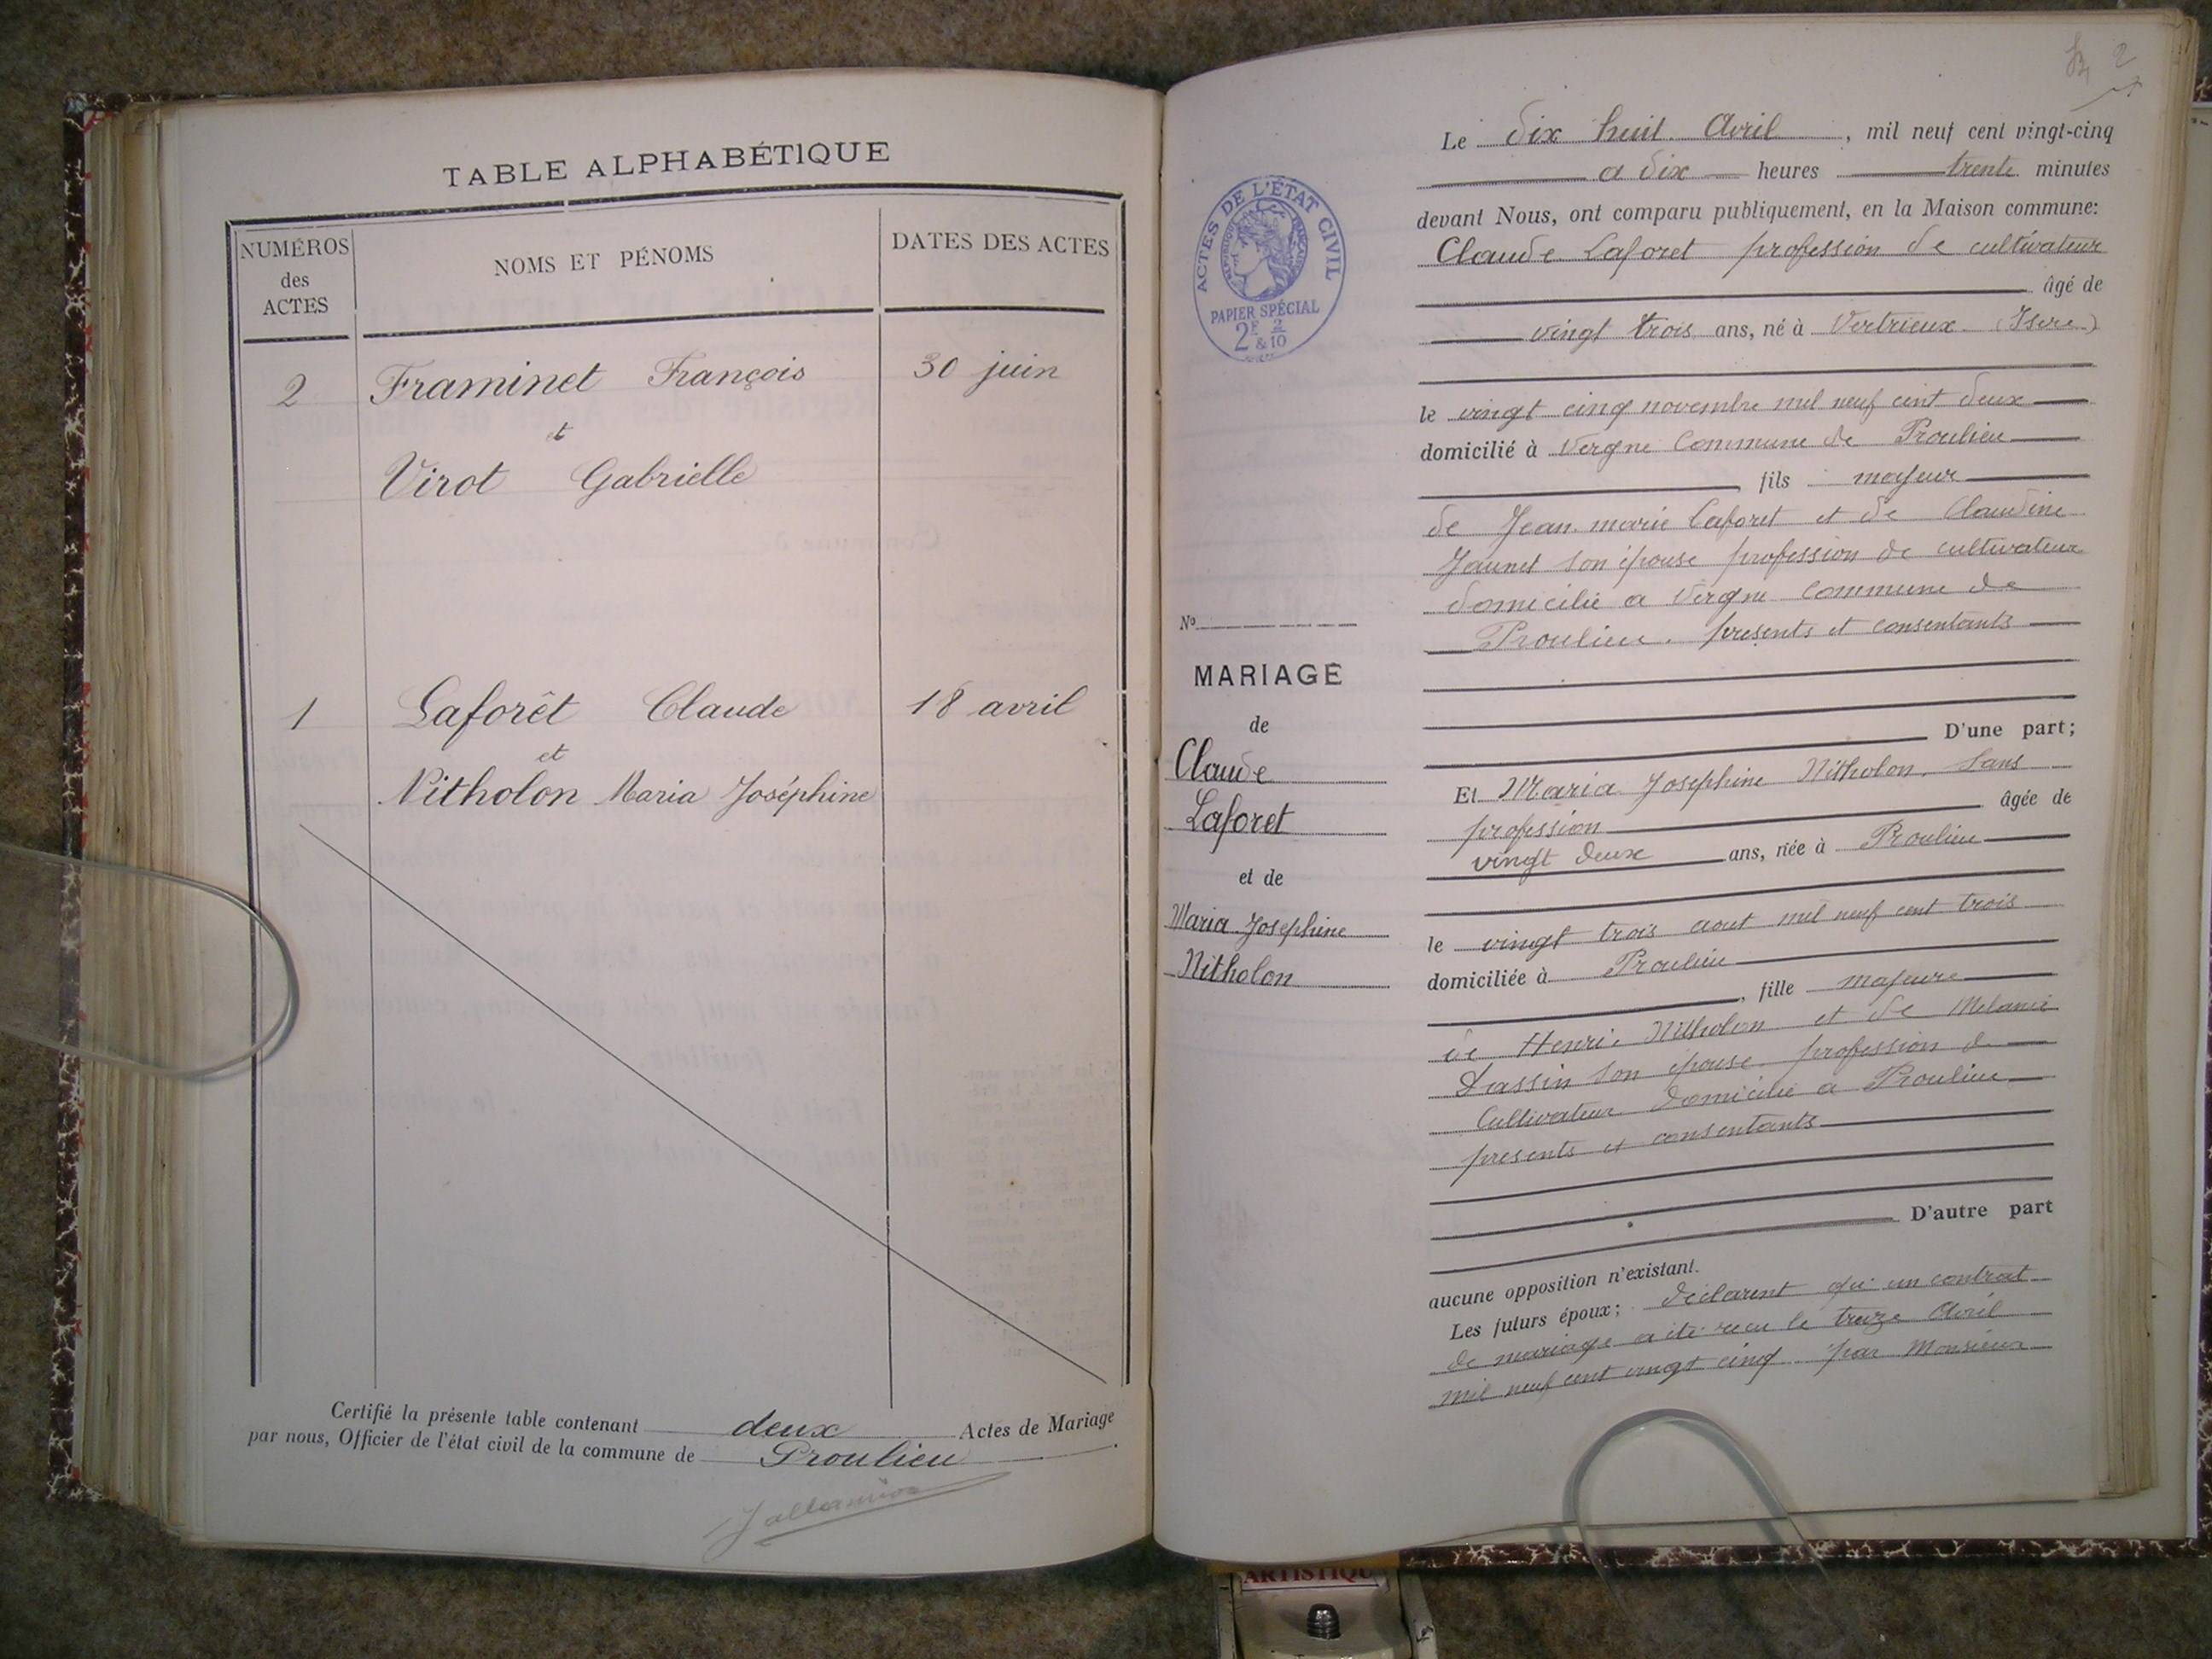 TABLE ALPHABÉTIQUE
NUMÉROS
des
ACTES
NOMS ET PÉNOMS
DATES DES ACTES
2 Framinet François 30 juin
et
Virot Gabrielle
1 Laforêt Claude 18 avril
et
Nitholon Maria Joséphine
Certifié la présente table contenant deux Actes de Mariage
par nous, Officier de l'état civil de la commune de Proulieu.
2
ACTES DE L'ÉTAT CIVIL
RÉPUBLIQUE FRANÇAISE
PAPIER SPÉCIAL
2F 2/10
&10
No
MARIAGE
de
Claude
Laforet
et de
Maria Josephine
Nitholon
Le dix huit Avril, mil neuf cent vingt-cinq
a dix heures trente minutes
devant Nous, ont comparu publiquement, en la Maison commune:
Claude Laforet profession de cultivateur
âgé de
vingt trois ans, né à Vertrieux (Isere)
le vingt cinq novembre mil neuf cent deux
domicilié à Vergne Commune de Proulieu
, fils majeur
de Jean marie Laforet et de Claudine
Jaunet son épouse profession de cultivateur
domicilie a Vergne Commune de
Proulieu. presents et consentants
D'une part;
Et Maria Josephine Nitholon. Sans
profession âgée de
vingt deux ans, née à Proulieu
le vingt trois aout mil neuf cent trois
domiciliée à Proulieu
, fille majeure
de Henri Nitholon et de Melanie
son épouse. profession de
Cultivateur domicilie a Proulieu
presents et consentants
D'autre part
aucune opposition n'existant.
Les futurs époux; déclarent qu'un contrat
de mariage a été recu le treize Avril
mil neuf cent vingt cinq par Monsieur
ARTISTIQU